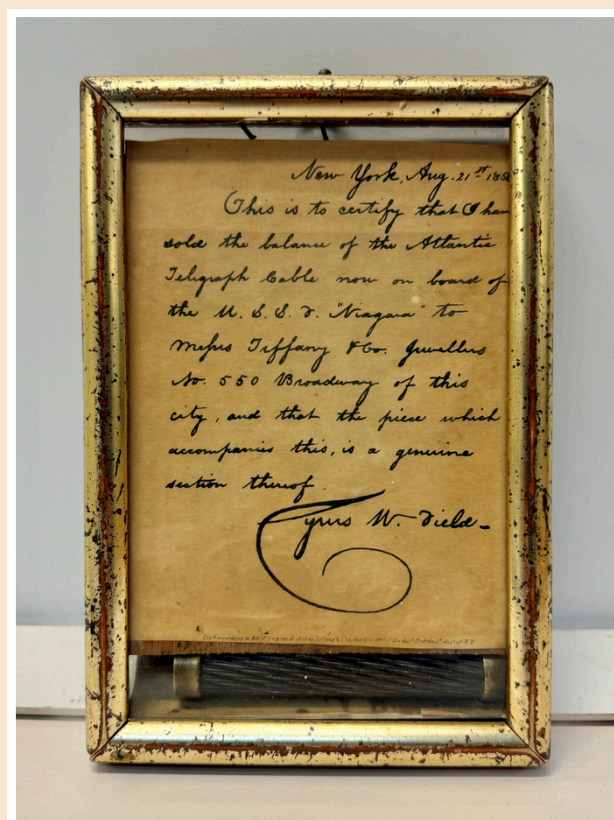 New York, Aug. 21st 185
This is to certify that I hav
sold the balance of the Atlantic
Telegraph Cable now on board of
the U. S. S. F. "Niagara" to
Messrs Tiffany & Co. Jewellers
No. 550 Broadway of this
city, and that the piece which
accompanies this, is a genuine
section thereof.
Cyrus W. Field